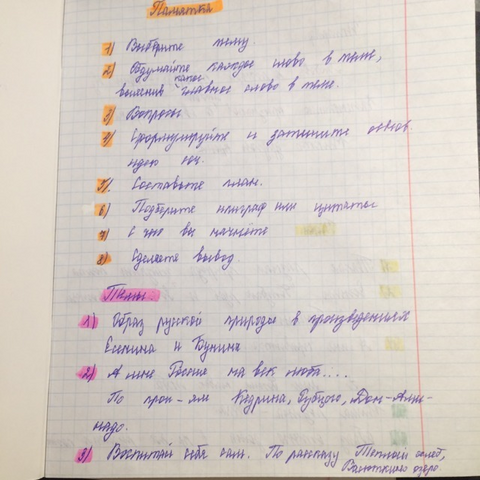 Памятка
1) Выберите тему.
2) Обдумайте каждое слово в теме,
какое
выяснив главное слово в теме.
3) Вопросы
4) Сформулируйте и запишите основ.
идею соч.
5) Составьте план.
6) Подберите эпиграф или цитаты
7) С чего вы начнёте
8) Сделайте вывод.
Темы:
1) Образ русской природы в произведениях
Есенина и Бунина
2) А мне Россия на век люба...
По прои-ям Кедрина, Рубцова, Дон-Ами-
надо.
3) Воспитай себя сам. По рассказу Теплый хлеб,
Васюткино озеро.